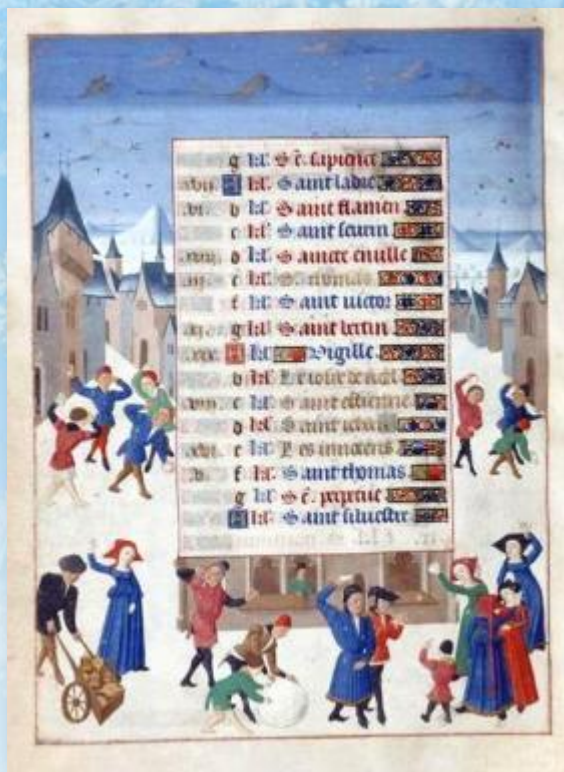 g kl' S ē. sapience
.xvii. A kl' Saint ladre
.vi. b kl' Saint flamen
c kl' Saint seurin
d kl' Saincte
e kl' S. thomas
f kl' Saint uictor
g kl' Saint bertin
.xix. A kl' Vigille
b kl' Le iour de noel
.viii. c kl' Saint estienne
d kl' Saint iehan
.xvi. e kl' Les innocens
.v. f kl' Saint thomas
g kl' S ē. perpetue
A kl' Saint siluestre